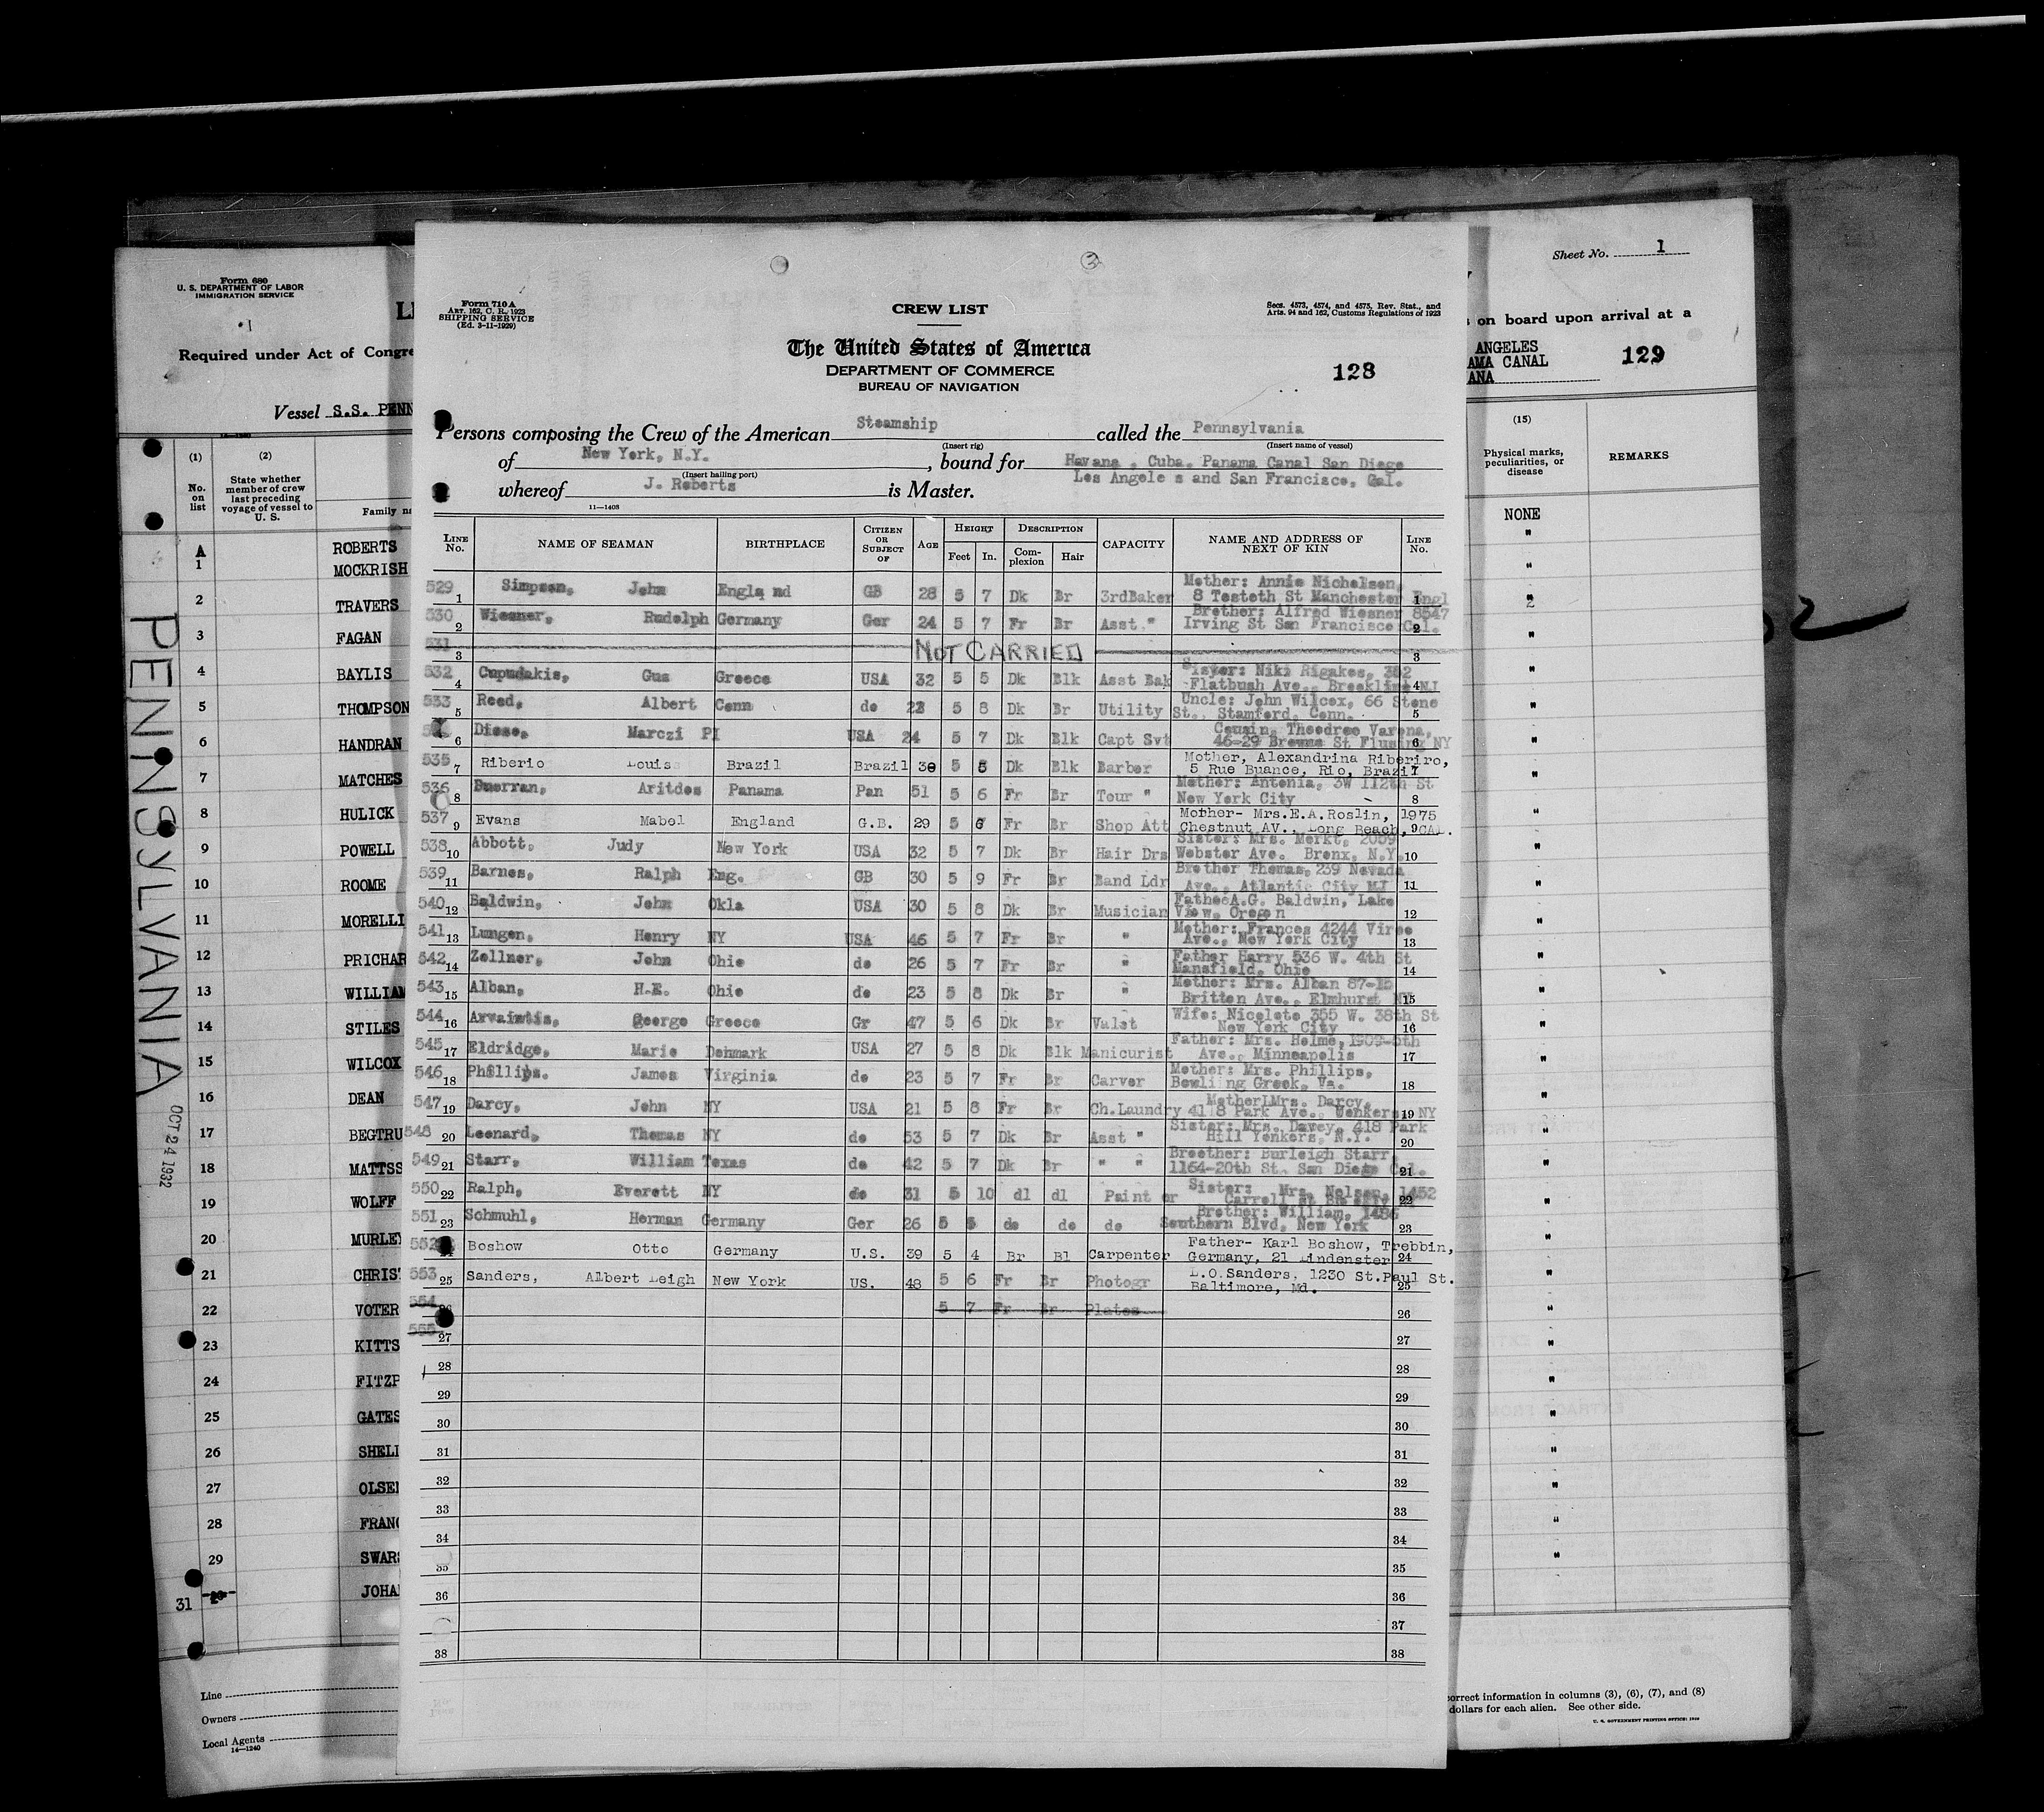 Form 680
U. S. DEPARTMENT OF LABOR
IMMIGRATION SERVICE
Required under Act of Congre
Vessel S.S. PENN
(1) (2)
No. on list
State whether member of crew last preceding voyage of vessel to U. S.
Family na
A
1 ROBERTS
MOCKRISH
2 TRAVERS
3 FAGAN
4 BAYLIS
5 THOMPSON
6 HANDRAN
7 MATCHES
8 HULICK
9 POWELL
10 ROOME
11 MORELLI
12 PRICHAR
13 WILLIAM
14 STILES
15 WILCOX
16 DEAN
17 BEGTRU
18 MATTSS
19 WOLFF
20 MURLEY
21 CHRIST
22 VOTER
23 KITTS
24 FITZP
25 GATES
26 SHELL
27 OLSE
28 FRANC
29 SWARS
31 JOHA
Line
Owners
Local Agents
14—1240
PENNSYLVANIA
OCT 24 1932
3
Form 710 A
Art. 162, C. R., 1923
SHIPPING SERVICE
(Ed. 3-11-1929)
CREW LIST
Secs. 4573, 4574, and 4575, Rev. Stat., and
Arts. 94 and 162, Customs Regulations of 1923
The United States of America
DEPARTMENT OF COMMERCE
BUREAU OF NAVIGATION
128
Persons composing the Crew of the American Steamship called the Pennsylvania
(Insert rig) (Insert name of vessel)
of New York, N.Y. , bound for Havana , Cuba. Panama Canal San Diego
(Insert hailing port)
whereof J. Roberts is Master. Los Angele s and San Francisco, Cal.
11—1408
LINE No. NAME OF SEAMAN BIRTHPLACE CITIZEN OR SUBJECT OF AGE HEIGHT Feet In. DESCRIPTION Complexion Hair CAPACITY NAME AND ADDRESS OF NEXT OF KIN LINE No.
529 1 Simpson, John England GB 28 5 7 Dk Br 3rdBaker Mother: Annie Nicholson, 8 Testeth St Manchester Engl 1
530 2 Wiesner, Rudolph Germany Ger 24 5 7 Fr Br Asst." Brother: Alfred Wiesner 8547 Irving St San Francisco Cal. 2
531 3 NOT CARRIED 3
532 4 Cupudakis, Gus Greece USA 32 5 5 Dk Blk Asst Bak Sisyer: Niki Rigakos, 302 Flatbush Ave., Brookline NJ 4
533 5 Reed, Albert Conn do 23 5 8 Dk Br Utility Uncle: John Wilcox, 66 Stone St., Stamford, Conn. 5
6 Diese, Marczi PI USA 24 5 7 Dk Blk Capt Svt Cousin, Theodroo Varona, 46-29 Browns St Flusing NY 6
535 7 Riberio Louiss Brazil Brazil 30 5 5 Dk Blk Barber Mother, Alexandrina Riberiro, 5 Rue Buance, Rio, Brazil 7
536 8 Duerran, Aritdes Panama Pan 51 5 6 Fr Br Tour " Mother: Antonia, 3W 112th St New York City 8
537 9 Evans Mabel England G.B. 29 5 6 Fr Br Shop Att Mother- Mrs.E.A.Roslin, 1975 Chestnut AV., Long Beach, CAL. 9
538 10 Abbott, Judy New York USA 32 5 7 Dk Br Hair Drs Sister: Mrs. Merkt, 2059 Webster Ave. Bronx, N.Y. 10
539 11 Barnes, Ralph Eng. GB 30 5 9 Fr Br Band Ldr Brother Thomas, 239 Nevada Ave., Atlantic City NJ 11
540 12 Baldwin, John Okla USA 30 5 8 Dk Br Musician FatheeA.G. Baldwin, Lake View, Oregon 12
541 13 Lungen, Henry NY USA 46 5 7 Fr Br " Mother: Frances 4244 Viree Ave., New York City 13
542 14 Zellner, John Ohio do 26 5 7 Fr Br " Father Harry 536 W. 4th St Mansfield, Ohio 14
543 15 Alban, H.E. Ohio do 23 5 8 Dk Br " Mother: Mrs. Alban 87-15 Britton Ave., Elmhurst 15
544 16 Arvaintis, George Greece Gr 47 5 6 Dk Br Valet Wife: Nicolete 355 W. 38th St New York City 16
545 17 Eldridge, Marie Denmark USA 27 5 8 Dk Blk Manicurist Father: Mrs. Holme, 1909-5th Ave., Minneapolis 17
546 18 Phillips. James Virginia do 23 5 7 Fr Br Carver Mother: Mrs. Phillips, Bowling Greek, Va. 18
547 19 Darcy, John NY USA 21 5 8 Fr Br Ch.Laundry Mother Mrs. Darcy, 418 Park Ave., Uonkers, NY 19
548 20 Leonard, Thomas NY do 53 5 7 Dk Br Asst " Sister: Mrs. Davey, 418 Park Hill Yonkers, N.Y. 20
549 21 Starr, William Texas do 42 5 7 Dk Br " " Breether: Burleigh Starr, 1164-20th St., San Diego Cal. 21
550 22 Ralph, Everett NY do 31 5 10 dl dl Paint er Sister: Mrs. Nelson, 1452 Carroll St 22
551 23 Schmuhl, Herman Germany Ger 26 5 5 do do do Brother: William, 1486 Southern Blvd, New York 23
552 Boshow Otto Germany U.S. 39 5 4 Br Bl Carpenter Father- Karl Boshow, Trebbin, Germany, 21 Lindenster 24
553 25 Sanders, Albert Leigh New York US. 48 5 6 Fr Br Photogr L.O.Sanders, 1230 St.Paul St. Baltimore, Md. 25
554 26 5 7 Fr Br Plates 26
555 27 27
28 28
29 29
30 30
31 31
32 32
33 33
34 34
35 35
36 36
37
38 38
Sheet No. 1
s on board upon arrival at a
ANGELES
AMA CANAL
ANA
129
(15)
Physical marks, peculiarities, or disease
REMARKS
NONE
orrect information in columns (3), (6), (7), and (8)
dollars for each alien. See other side.
U. S. GOVERNMENT PRINTING OFFICE: 1929